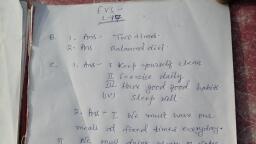 EVS -
L-17
B. 1. Ans- Two times.
2. Ans - Balanced diet
C. 1. Ans - I Keep yourself clean
II Exercise daily
III Have good good habits
(IV) Sleep well
2. Ans - I We must have our
meals at fixed times everyday.
II We must